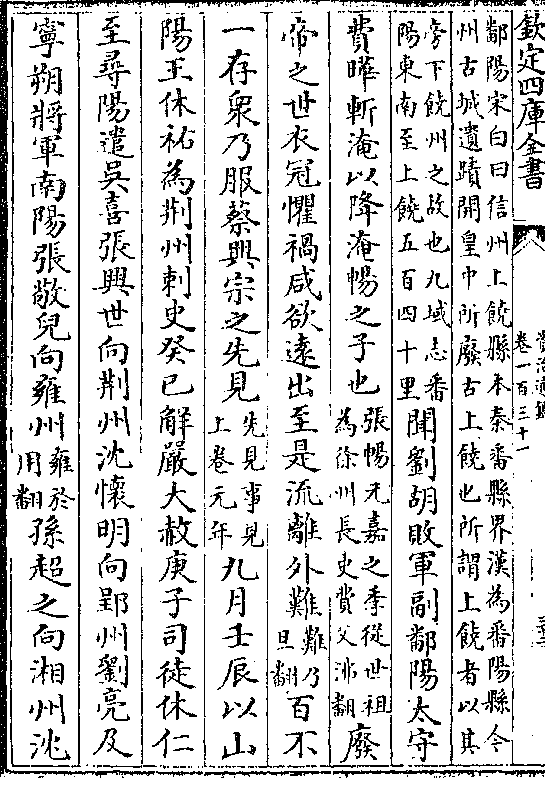 欽定四庫全書
資治通鑑
卷一百三十一
鄱陽宋白曰信州上饒縣本秦番縣界漢為番陽縣今
州古城遺蹟開皇中所廢古上饒也所謂上饒者以其
旁下饒州之故也九域志番
陽東南至上饒五百四十里
聞劉胡敗軍副鄱陽太守
費曄斬淹以降淹暢之子也
張暢元嘉之季從世祖
為徐州長史費父沸翻
廢
帝之世衣冠懼禍咸欲遠出至是流離外難
難乃
旦翻
百不
一存衆乃服蔡興宗之先見
先見事見
上卷元年
九月壬辰以山
陽王休祐為荆州刺史癸巳解嚴大赦庚子司徒休仁
至尋陽遣吳喜張興世向荆州沈懷明向郢州劉亮及
寧朔將軍南陽張敬兒向雍州
雍於
用翻
孫超之向湘州沈